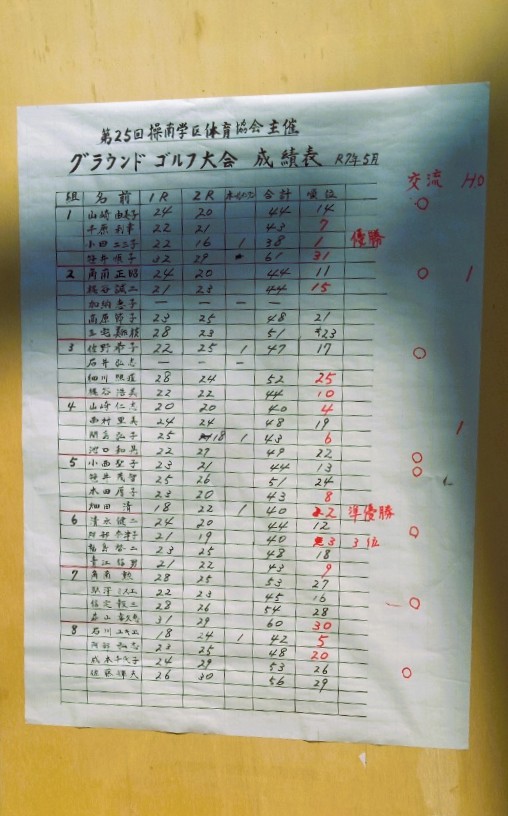 第25回 操南学区体育協会主催
グラウンド ゴルフ大会 成績表 R7年5月
交流 HO
組 名前 1R 2R ホールインワン 合計 順位
1 山崎 24 20 44 14 ○
千原 利幸 22 21 43 7
小田 二三子 22 16 1 38 1 優勝
笹井 順子 32 29 61 31
2 角南 正昭 24 20 44 11 ○ 1
誠二 21 23 44 15
加納 恵子 — — — —
高原 節子 23 25 48 21
三宅 28 23 51 23
3 佐野 希子 22 25 1 47 17 ○
石井 弘志 — — —
細川 28 24 52 25
浩美 22 22 44 10
4 山崎 仁志 20 20 40 4
西村 里美 24 24 48 19
弘子 25 18 1 43 6 1
河口 和昌 22 27 49 22 ○
5 小西 聖子 23 21 44 13 ○
笹井 茂智 25 26 51 24
本田 厚子 23 20 43 8
畑田 清 18 22 1 40 2 準優勝
6 清水 健二 24 20 44 12
阿部 奈津子 21 19 40 3 3位 ○
23 25 48 18
21 22 43 9
7 角南 勲 28 25 53 27
22 23 45 16
28 26 54 28 ○
31 29 60 30
8 石川 18 24 1 42 5
阿部 23 25 48 20
成本 千代子 24 29 53 26
佐藤 26 30 56 29 ○